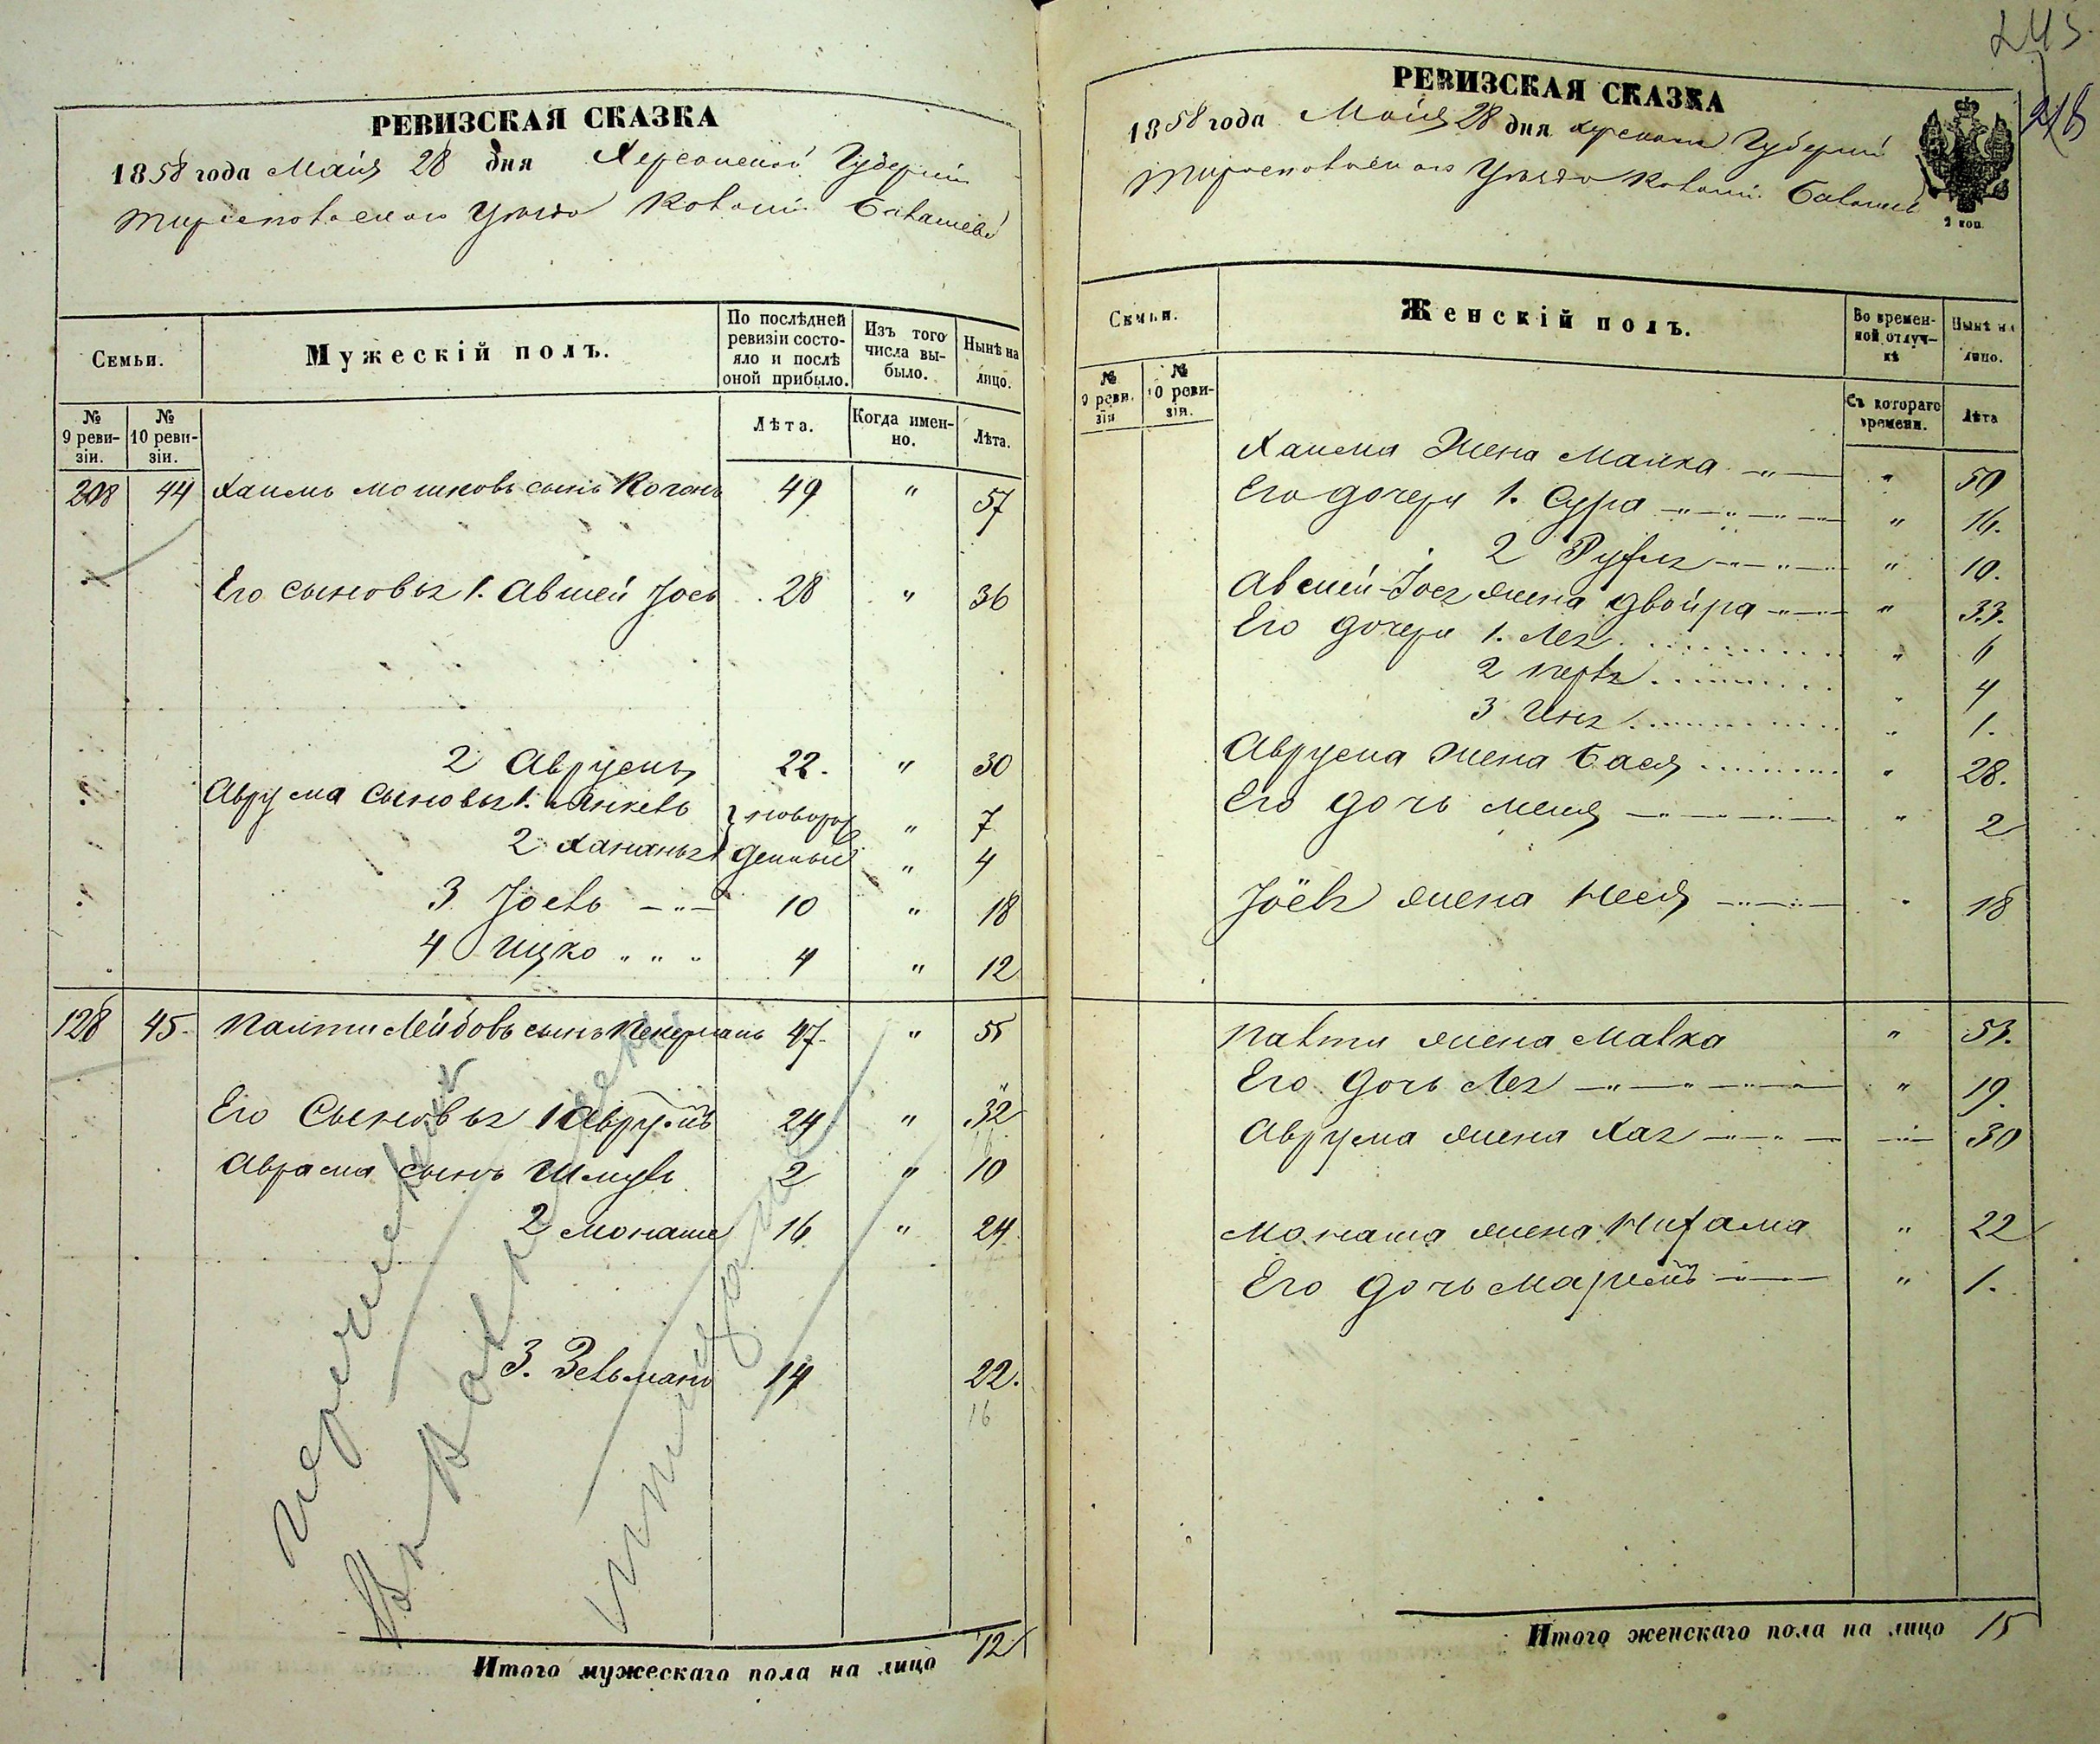 РЕВИЗСКАЯ СКАЗКА
1858 года Маія 28 дня Херсонской Губерніи
Тираспольскаго Уѣзда Колоніи
Семьи.
Мужескій полъ.
По послѣдней ревизіи состояло и послѣ оной прибыло.
Изъ того числа выбыло.
Нынѣ на лицо.
№ 9 ревизіи.
№ 10 ревизіи.
Лѣта.
Когда именно.
Лѣта.
208 44 Хаимъ Мошковъ сынъ Коганъ 49 " 57
Его сыновья 1. Авшей Іось 28 " 36
2 Аврумъ 22. " 30
Аврума Сыновья 1. Янкель } новорож " 7
2 Хананья } денный " 4
3 Іоель 10 " 18
4 Ицко " " " 4 " 12
128 45. Палти Лейбовъ сынъ Пекерманъ 47. " 55
Его Сыновья 1 Аврумъ 24 " 32
Аврама сынъ Шмуль 2 " 10
2 Монаше 16 " 24
3. Зельманъ 14 22.
16
перечислены
Итого мужескаго пола на лицо 12
245
РЕВИЗСКАЯ СКАЗКА
1858 года Маія 28 дня Херсонской Губерніи
Тираспольскаго Уѣзда Колоніи
2 коп
Семьи.
Женскій полъ.
Во временной отлучкѣ
Нынѣ на лицо.
№ 9 ревизіи
№ 10 ревизіи.
Съ котораго времени.
Лѣта
Хаима Жена Малка " 50
Его дочери 1. Сура " 16.
2 " 10.
Авшей-Іося жена Двойра " 33.
Его дочери 1. Лея " 6
2 Перля " 4
3 " 1.
Аврума жена Бася " 28.
Его дочь " 2
Іоёля жена Неся " 18
Палти жена Малка " 53.
Его дочь Лея " 19.
Аврума жена Хая 30
Монаша жена Нихама " 22
Его дочь Маріемъ " 1.
Итого женскаго пола на лицо 15